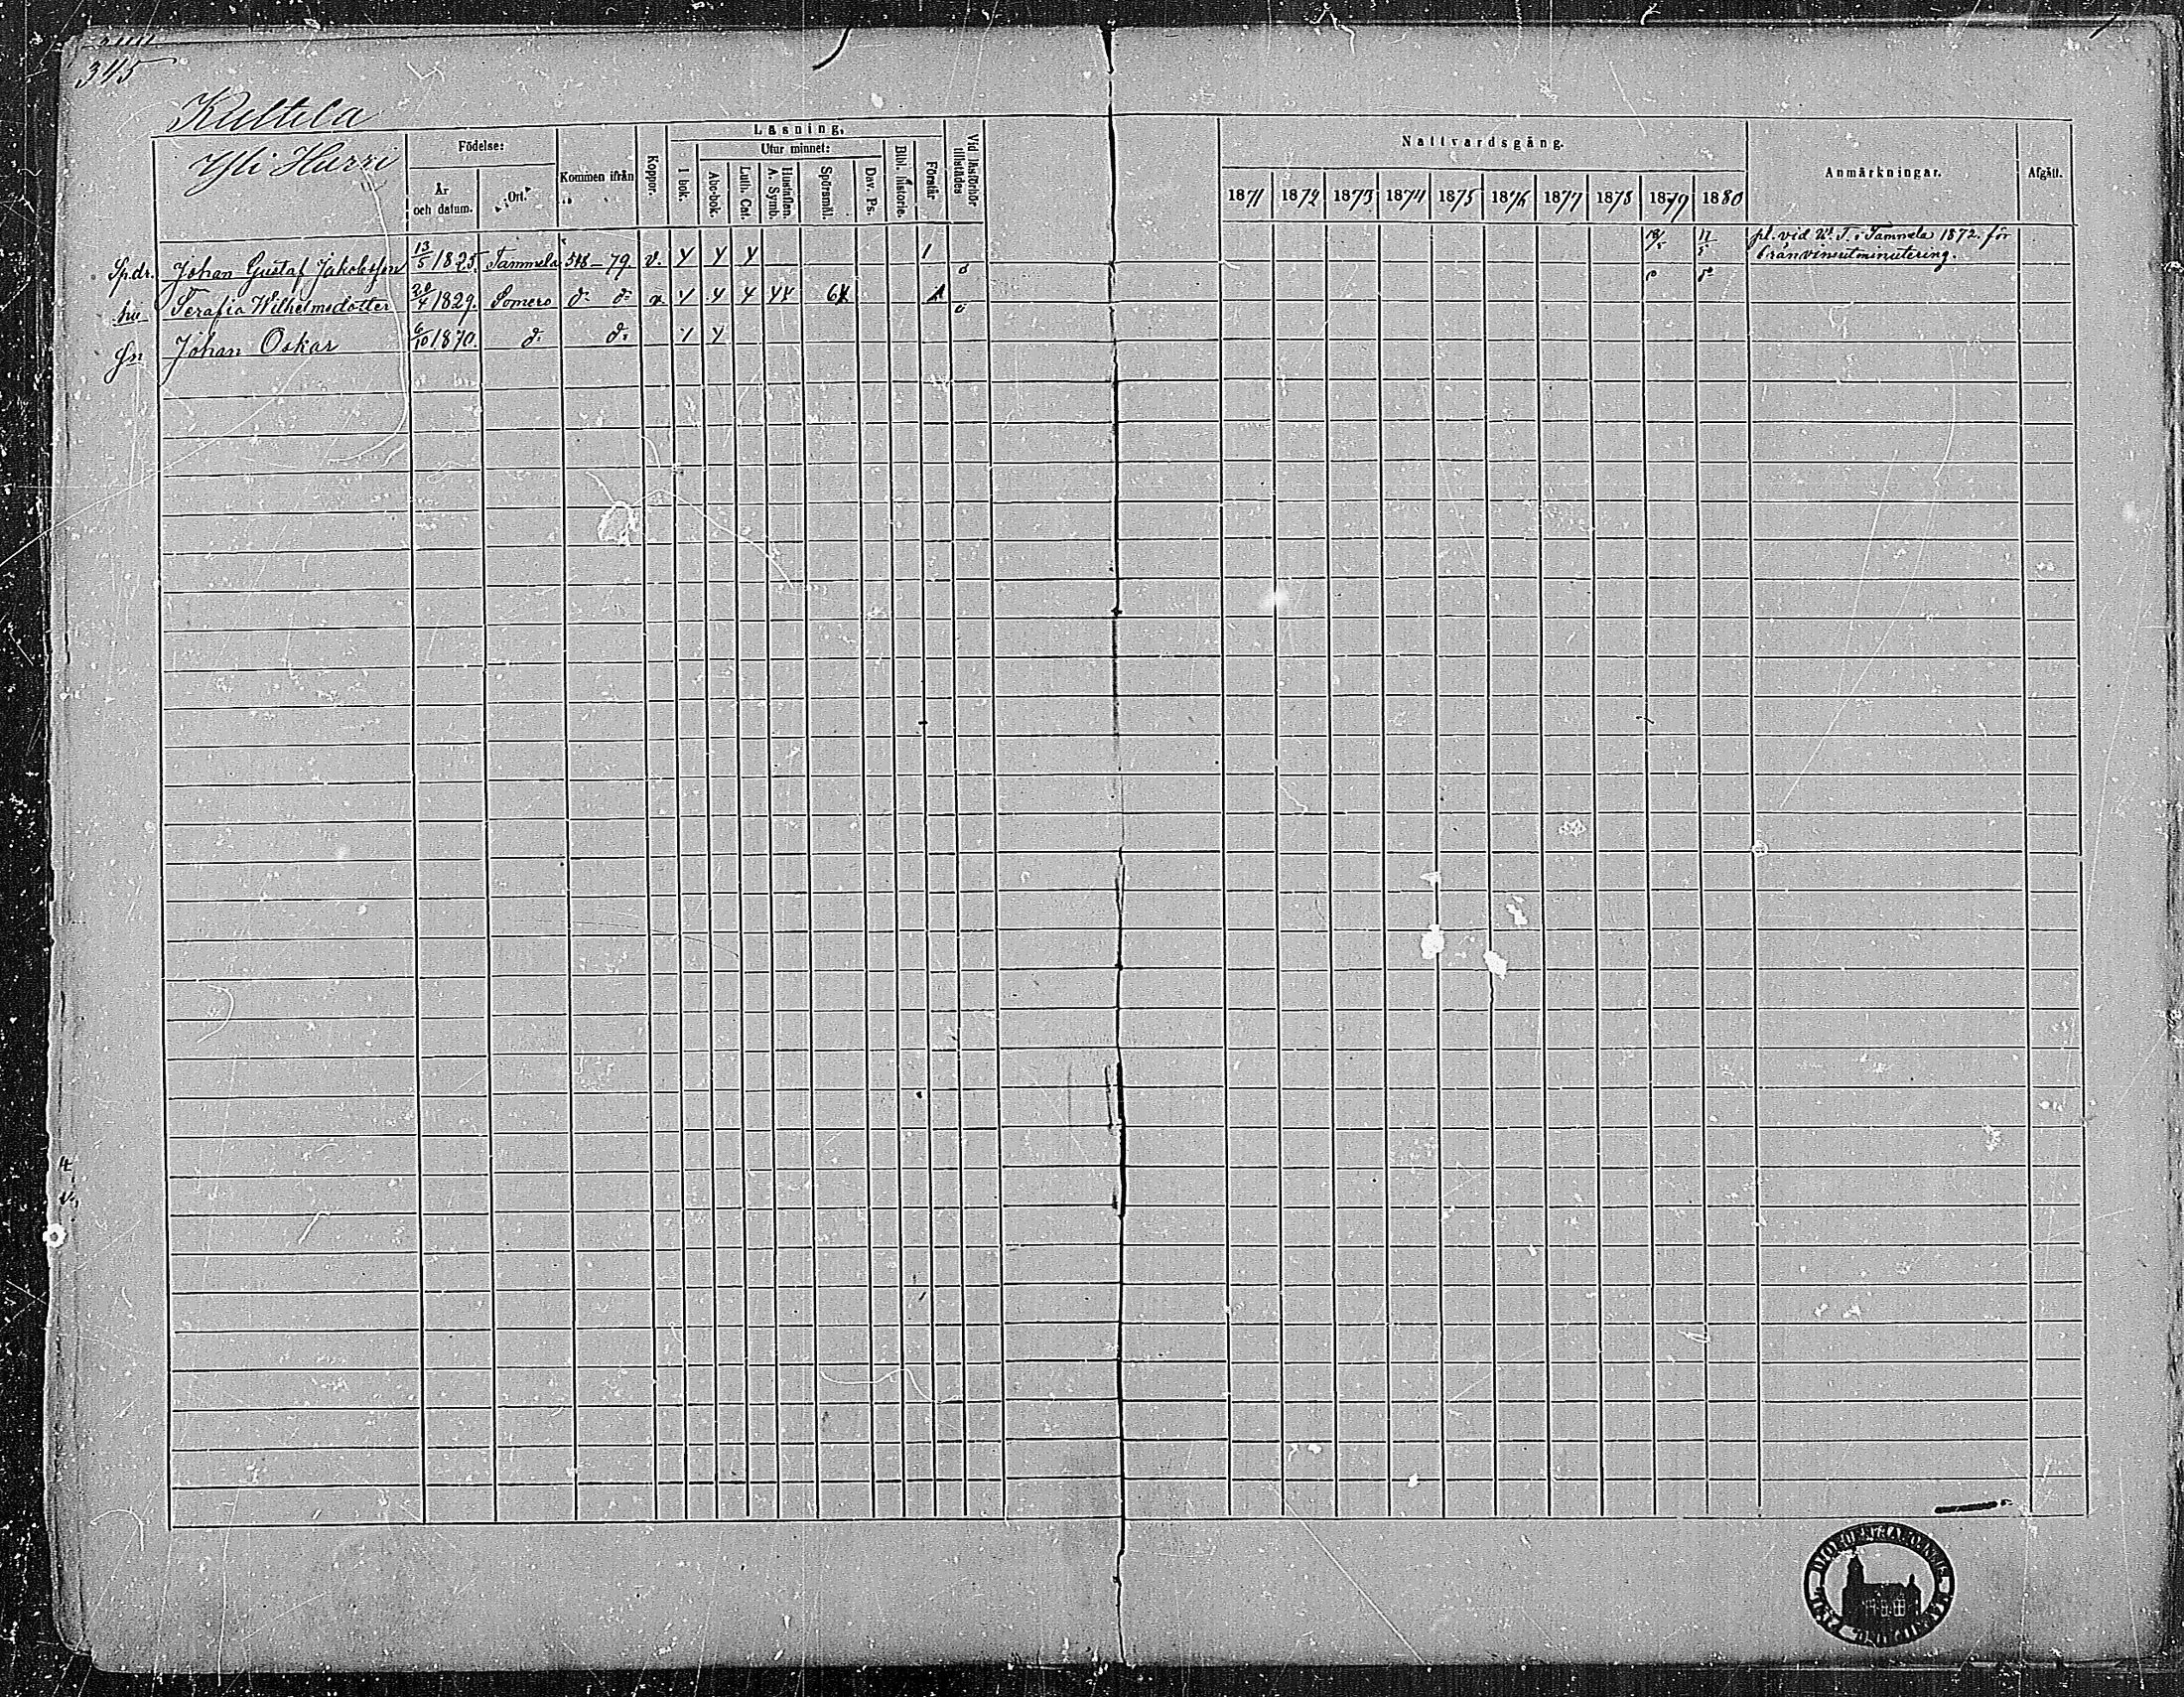 345
Kultela
Yli Hurri
Födelse:
År och datum.
Ort.
Kommen ifrån
Koppor.
Läsning.
I bok.
Utur minnet:
Abc-bok.
Luth. Cat.
Hustaflan. A. Symb.
Spörsmål.
Dav. Ps.
Bibl. historie.
Förstår
Vid läsförhör tillstädes
Nattvardsgång.
1871 1872 1873 1874 1875 1876 1877 1878 1879 1880
Anmärkningar.
Afgått.
Sp.dr. Johan Gustaf Jakobsson 13/5 1825. Tammela 518 - 79. v. 1 18/5 17/5 pl. vid W. T. i Tammela 1872. för
bränvinsutminutering.
hu Serafia Wilhelmsdotter 20/4 1829. Somero d:o d:o
sn Johan Oskar 6/10 1870. d:o d:o